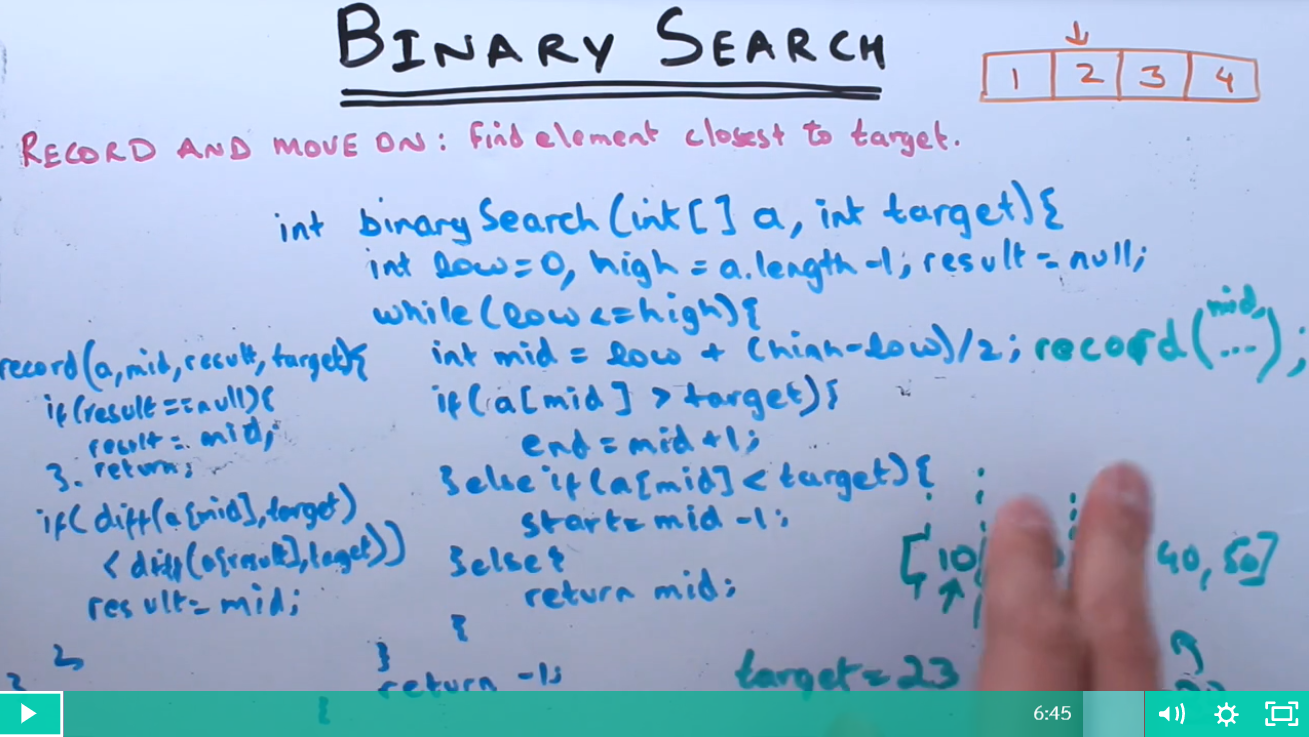 BINARY SEARCH
1 2 3 4
RECORD AND MOVE ON: Find element closest to target.
int binarySearch(int[] a, int target){
int low=0, high=a.length-1; result=null;
while(low<=high){
int mid = low + (high-low)/2; record(mid, ...);
if(a[mid] > target){
end=mid+1;
}else if(a[mid] < target){
start=mid-1;
}else{
return mid;
{
}
return -1;
{
record(a,mid,result,target){
if(result==null){
result=mid;
}. return;
if(diff(a[mid],target)
<diff(a[result],taget))
result=mid;
[10 40, 50]
target=23
6:45